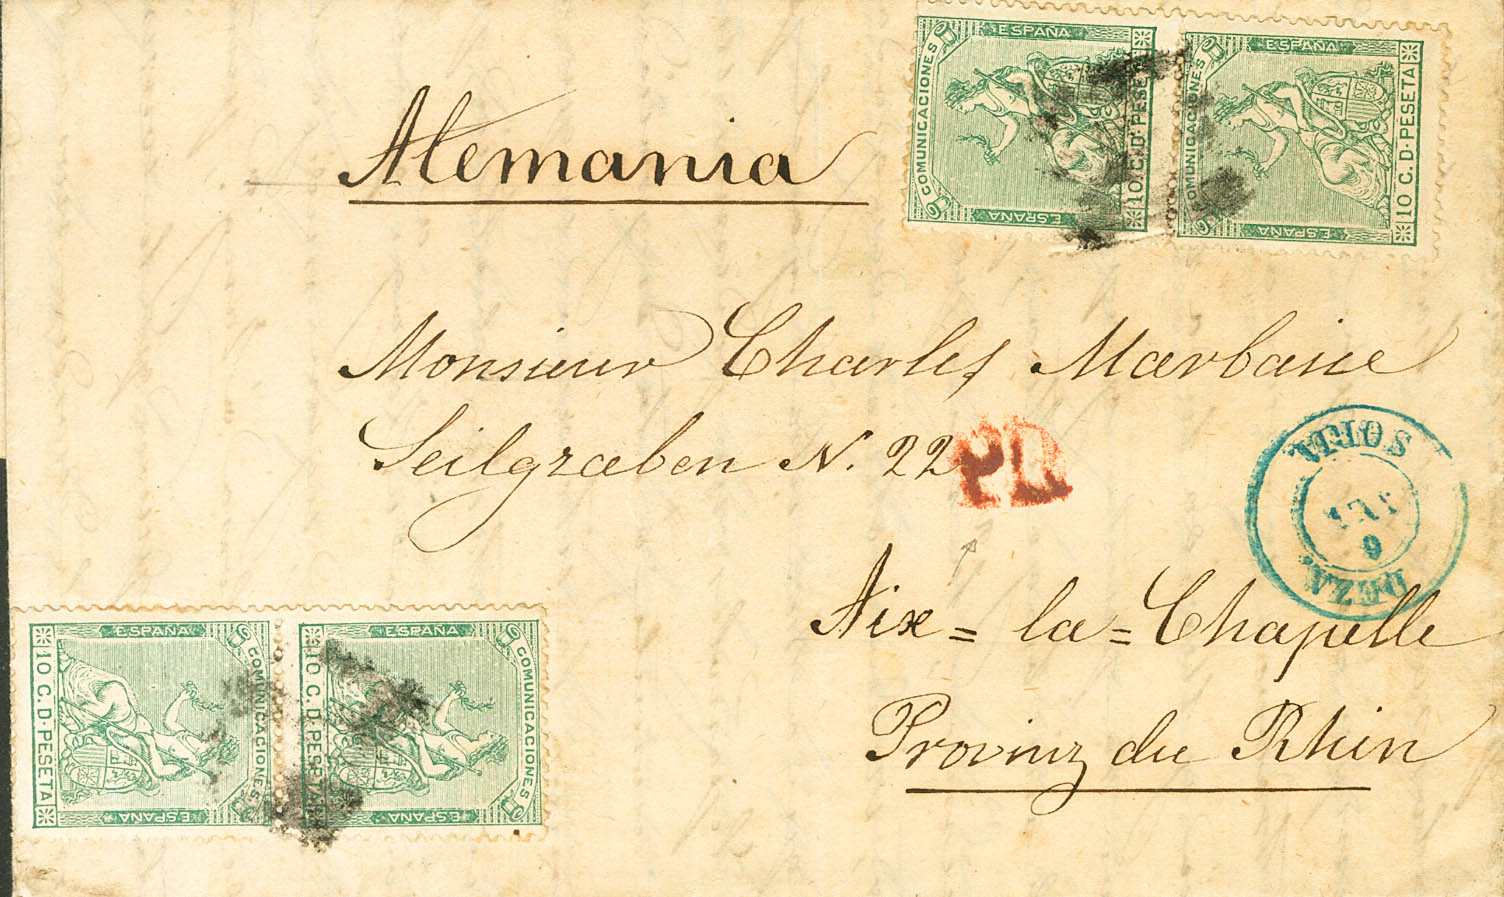 Alemania
ESPAÑA
COMUNICACIONES
10 C. D. PESETA
ESPAÑA
ESPAÑA
COMUNICACIONES
10 C. D. PESETA
ESPAÑA
Monsieur Charles
Seilgræben N. 22
PD
SORIA
9
DEZA.
Aix=la=Chapelle
Provinz du Rhin
ESPAÑA
COMUNICACIONES
10 C. D. PESETA
ESPAÑA
ESPAÑA
COMUNICACIONES
10 C. D. PESETA
ESPAÑA